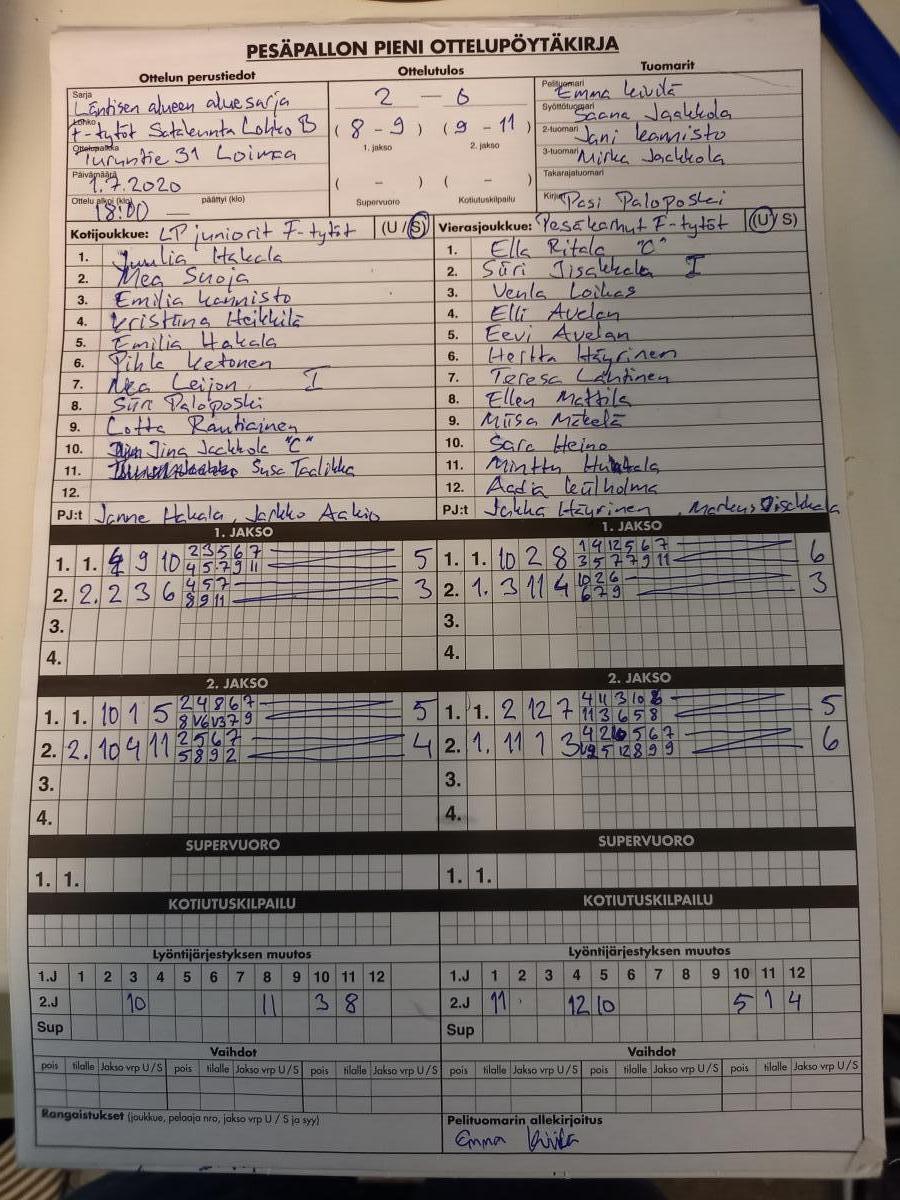 PESÄPALLON PIENI OTTELUPÖYTÄKIRJA
Ottelun perustiedot
Ottelutulos
Tuomarit
Sarja
Läntisen alueen aluesarja
Lohko
F-tytöt Satakunta Lohko B
Ottelupaikka
Turuntie 31 Loimaa
Päivämäärä
1.7.2020
Ottelu alkoi (klo) päättyi (klo)
18:00 —
2 — 6
( 8 - 9 ) ( 9 - 11 )
1. jakso 2. jakso
( - ) ( - )
Supervuoro Kotiutuskilpailu
Pelituomari
Emma
Syöttötuomari
Saana Jaakkola
2-tuomari
Jani Kannisto
3-tuomari
Mirka Jaakkola
Takarajatuomari
Kirjuri
Pasi Paloposki
Kotijoukkue: LP juniorit F-tytöt (U / S)
1. Juulia Hakala
2. Mea Suoja
3. Emilia Kannisto
4. Kristiina Heikkilä
5. Emilia Hakala
6. Pihla Ketonen
7. Nea Leijon I
8. Siiri Paloposki
9. Lotta Rautiainen
10. Jina Jaakkola "C"
11. Susa Taalikka
12.
PJ:t Janne Hakala, Jarkko
Vierasjoukkue: Pesäkarhut F-tytöt (U / S)
1. Ella Ritala "C"
2. Siiri Iisakkala I
3. Venla Loikas
4. Elli Avelan
5. Eevi Avelan
6. Hertta Häyrinen
7. Teresa Lähtinen
8. Ellen Mattila
9. Miisa Mäkelä
10. Sara Heino
11. Minttu Huhtala
12. Aadia Kulholma
PJ:t Jukka Häyrinen, Markus Iisakkala
1. JAKSO
1. 1. 4 9 10 2 3 5 6 7 5
4 5 7 9 11
2. 2. 2 3 6 4 5 7 3
8 9 11
3.
4.
1. JAKSO
1. 1. 10 2 8 1 4 12 5 6 7 6
3 5 7 7 9 11
2. 1. 3 11 4 10 2 6 3
6 7 9
3.
4.
2. JAKSO
1. 1. 10 1 5 2 4 8 6 7 5
8 3 7 9
2. 2. 10 4 11 2 5 6 7 4
5 8 9 2
3.
4.
2. JAKSO
1. 1. 2 12 7 4 11 3 10 5
11 3 6 5 8
2. 1. 11 1 3 4 2 5 6 7 6
5 12 8 9 9
3.
4.
SUPERVUORO
1. 1.
SUPERVUORO
1. 1.
KOTIUTUSKILPAILU
KOTIUTUSKILPAILU
Lyöntijärjestyksen muutos
1.J 1 2 3 4 5 6 7 8 9 10 11 12
2.J 10 11 3 8
Sup
Lyöntijärjestyksen muutos
1.J 1 2 3 4 5 6 7 8 9 10 11 12
2.J 11 12 10 5 1 4
Sup
Vaihdot
pois tilalle Jakso vrp U / S pois tilalle Jakso vrp U / S pois tilalle Jakso vrp U / S
Vaihdot
pois tilalle Jakso vrp U / S pois tilalle Jakso vrp U / S pois tilalle Jakso vrp U / S
Rangaistukset (joukkue, pelaaja nro, jakso vrp U / S ja syy)
Pelituomarin allekirjoitus
Emma